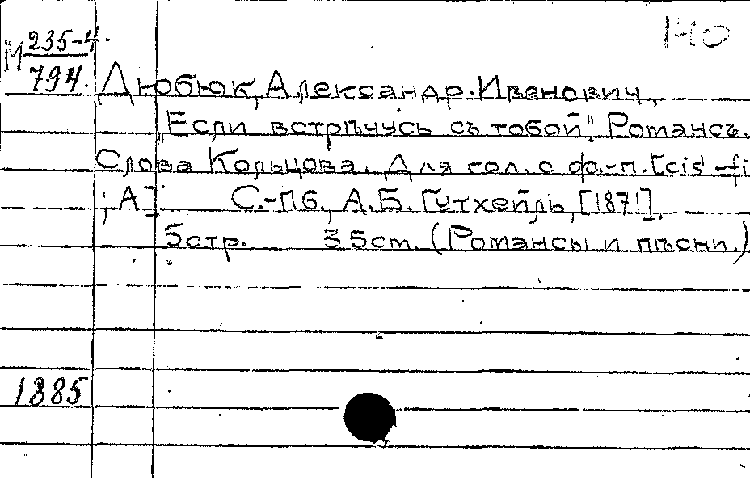 140
М 235-4
794
Дюбюк, Александр Иванович.
„Если встрѣчусь съ тобой". Романсъ.
Слова Кольцова. Для гол. с ф.-п. [cis' - fi
; A] С.-Пб, А.Б. Гутхейль, [1871].
5стр. 35cm. (Романсы и пѣсни.)
1885